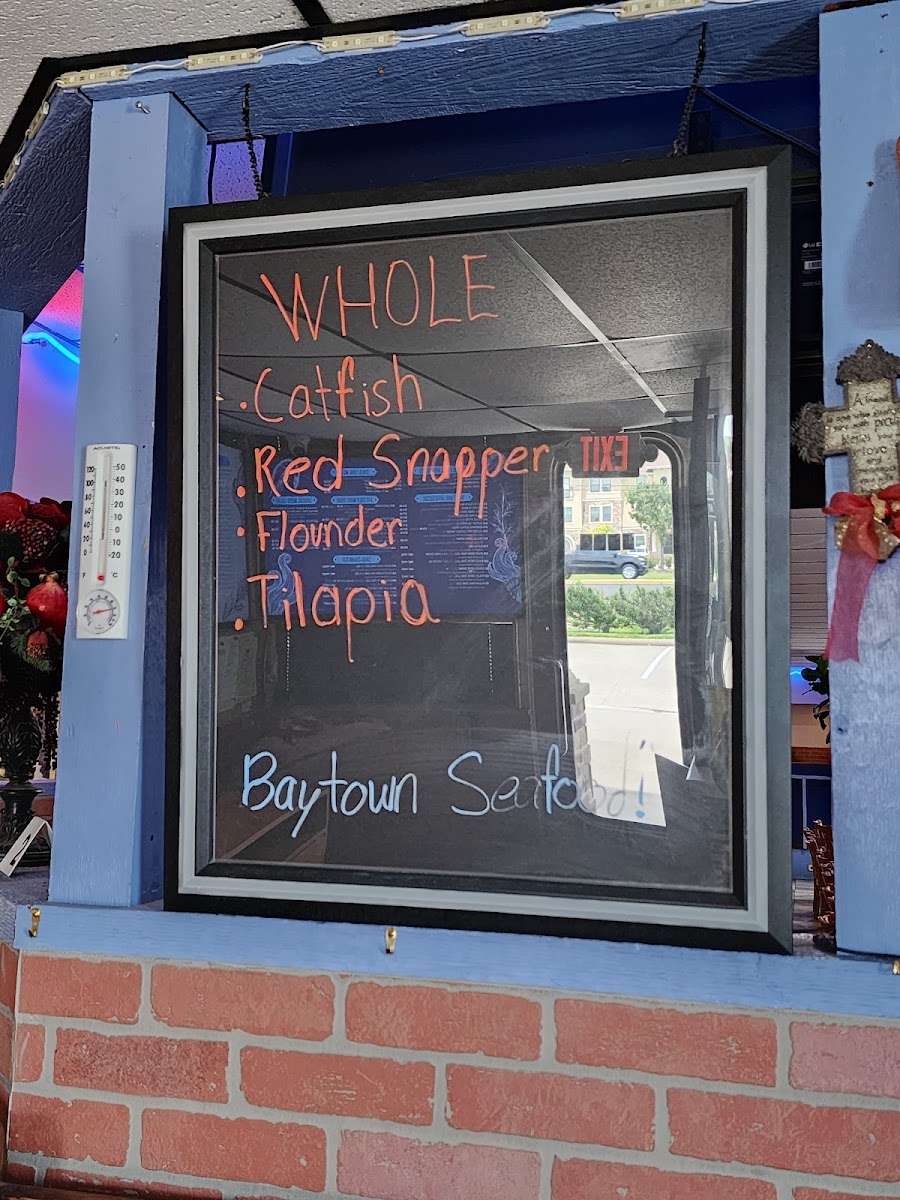 WHOLE
. Catfish
. Red Snapper
. Flounder
. Tilapia
Baytown Seafood!
EXIT
ACURITE
120
100
80
60
40
20
0
50
40
30
20
10
0
10
20
F
°C
LG
love